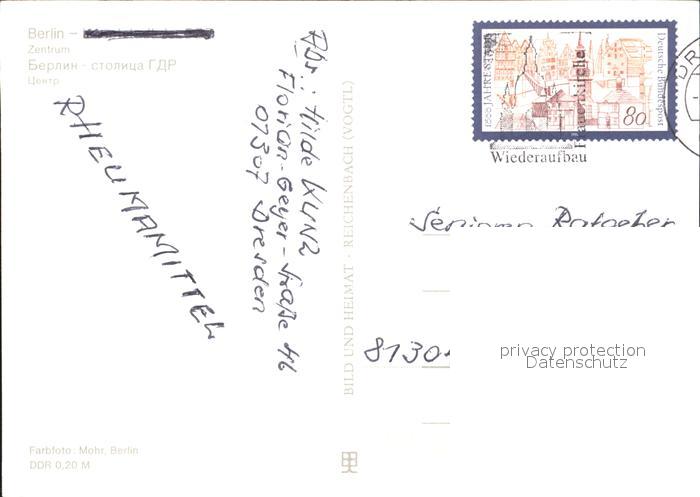 Berlin –
Zentrum
Берлин - столица ГДР
Центр
RHEUMAMITTEL
Abs.: Hilde KUNZ
Florian-Geyer-Straße 46
01307 Dresden
BILD UND HEIMAT · REICHENBACH (VOGTL)
Deutsche Bundespost
80
Frauenkirche
Wiederaufbau
Senioren Ratgeber
8130
privacy protection
Datenschutz
Farbfoto: Mohr, Berlin
DDR 0,20 M